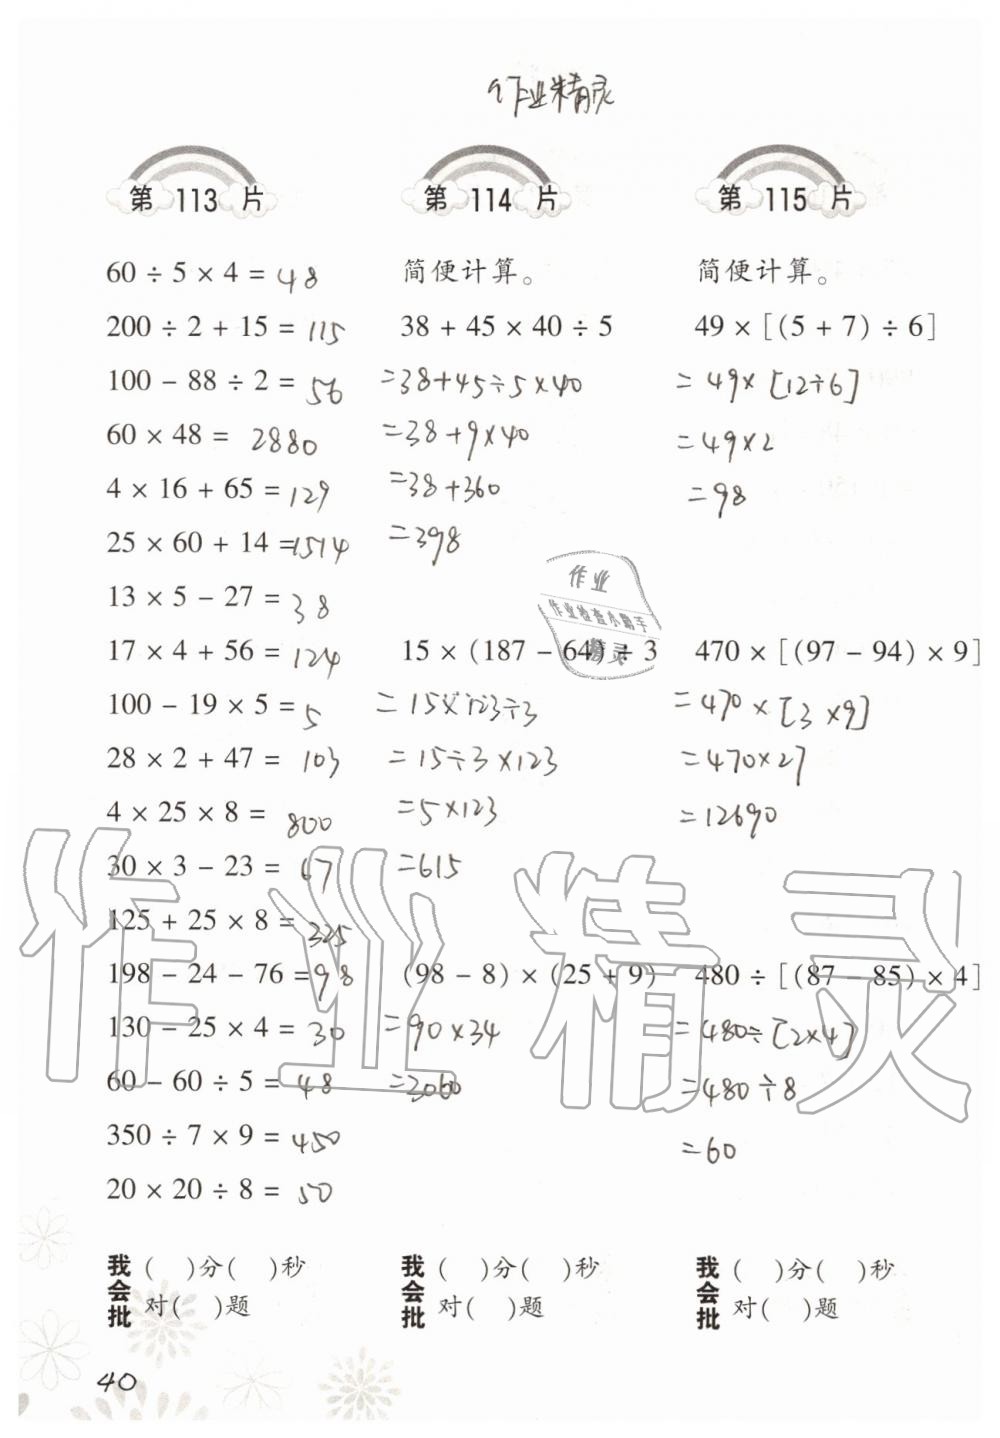 作业精灵
第 113 片
60 ÷ 5 × 4 = 48
200 ÷ 2 + 15 = 115
100 - 88 ÷ 2 = 56
60 × 48 = 2880
4 × 16 + 65 = 129
25 × 60 + 14 = 1514
13 × 5 - 27 = 38
17 × 4 + 56 = 124
100 - 19 × 5 = 5
28 × 2 + 47 = 103
4 × 25 × 8 = 800
30 × 3 - 23 = 67
125 + 25 × 8 = 325
198 - 24 - 76 = 98
130 - 25 × 4 = 30
60 - 60 ÷ 5 = 48
350 ÷ 7 × 9 = 450
20 × 20 ÷ 8 = 50
我会批
( )分( )秒
对( )题
第 114 片
简便计算。
38 + 45 × 40 ÷ 5
=38+45÷5×40
=38+9×40
=38+360
=398
15 × (187 - 64) ÷ 3
=15×123÷3
=15÷3×123
=5×123
=615
(98 - 8) × (25 + 9)
=90×34
=3060
我会批
( )分( )秒
对( )题
第 115 片
简便计算。
49 × [(5 + 7) ÷ 6]
=49×[12÷6]
=49×2
=98
470 × [(97 - 94) × 9]
=470×[3×9]
=470×27
=12690
480 ÷ [(87 - 85) × 4]
=480÷[2×4]
=480÷8
=60
我会批
( )分( )秒
对( )题
作业
作业检查小助手
精灵
作业精灵
40